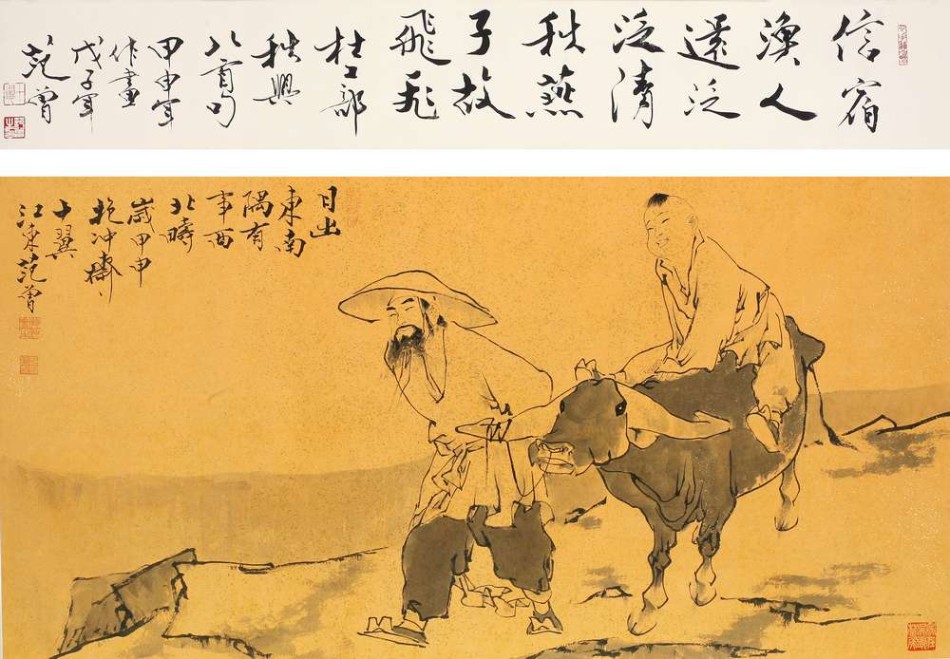 信宿
漁人
還泛
泛清
秋燕
子故
飛飛
杜工部
秋興
八首句
甲申年
作畫
戊子年
范曾
日出
東南
隅有
事西
北疇
歲甲申
抱冲齋
十翼
江東范曾